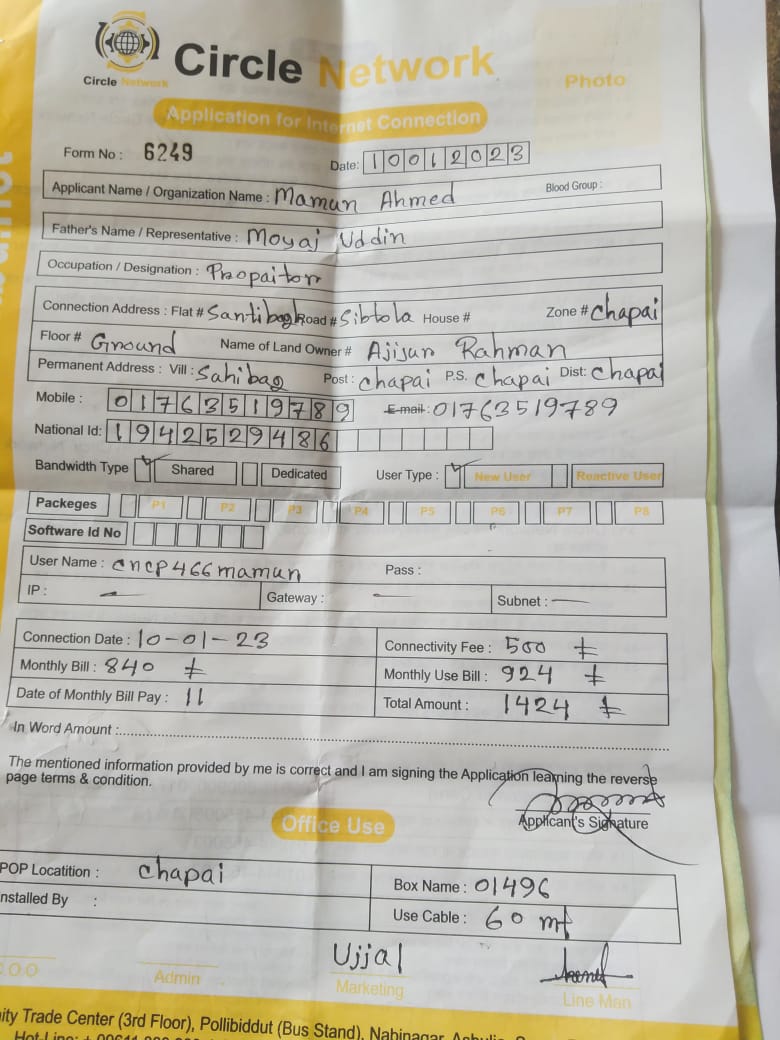 Circle Network
Circle Network
Photo
Application for Internet Connection
Form No : 6249
Date: 10012023
Applicant Name / Organization Name : Mamun Ahmed Blood Group :
Father's Name / Representative : Moyaj Uddin
Occupation / Designation : Propaitor
Connection Address : Flat # Santibagh Road # Sibtola House # Zone # Chapai
Floor # Ground Name of Land Owner # Ajijur Rahman
Permanent Address : Vill : Sahibag Post : Chapai P.S. Chapai Dist: Chapai
Mobile : 01763519789 E-mail : 01763519789
National Id: 1942529486
Bandwidth Type Shared Dedicated User Type : New User Reactive User
Packeges P1 P2 P3 P4 P5 P6 P7 P8
Software Id No
User Name : cncp466mamun Pass :
IP : — Gateway : — Subnet : —
Connection Date : 10-01-23 Connectivity Fee : 500 ৳
Monthly Bill : 840 ৳ Monthly Use Bill : 924 ৳
Date of Monthly Bill Pay : 11 Total Amount : 1424 ৳
In Word Amount :
The mentioned information provided by me is correct and I am signing the Application learning the reverse
page terms & condition.
Applicant's Signature
Office Use
POP Locatition : Chapai Box Name : 01496
nstalled By : Use Cable : 60 mt
Ujjal
C.O.O Admin Marketing Line Man
ity Trade Center (3rd Floor), Pollibiddut (Bus Stand), Nabinagar,